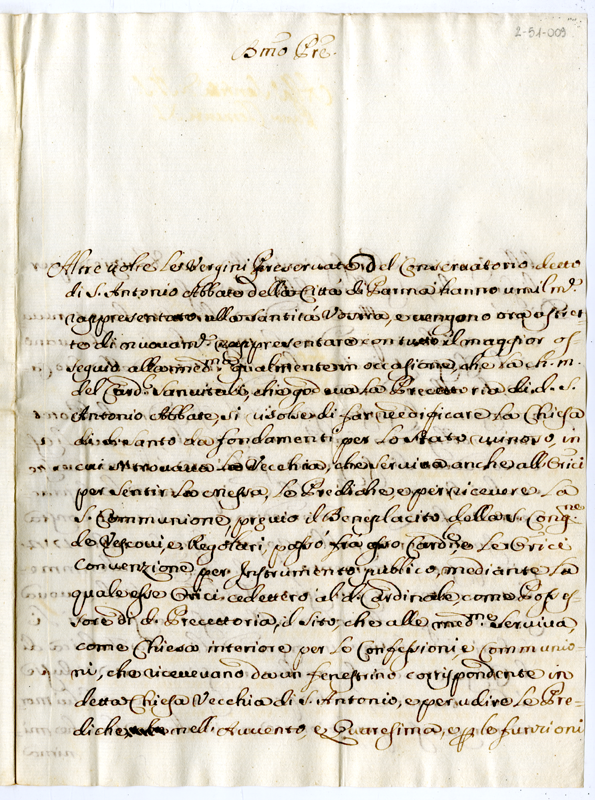 2-51-009
Bmo Pre.
Altre volte le Vergini Preservate del Conservatorio detto
di S. Antonio Abbate della Città di Parma hanno umilme.
rappresentato alla Santità Vostra, e vengono ora astret-
te di nuovame. rappresentare con tutto il maggior os-
sequio alla medma. qualmente in occasione, che la ch. m.
del Card. Sanvitali, che godeva la Precettoria di d. S.
Antonio Abbate, si risolse di far reedificare la Chiesa
di do. Santo da fondamenti per lo stato ruinoso, in
cui ritrovava la Vecchia, che serviva anche all' Orici
per sentir la Messa, le Prediche, e per ricevere la
S. Communione, previo il Beneplacito della S. Congne.
de Vescovi, e Regolari, passò fra esso Cardle. e le Orici
Convenzione per Instrumento publico, mediante la
quale esse Orici cedettero al d. Cardinale, come Posses-
sore di d. Precettoria, il sito, che alle medme. serviva,
come Chiesa interiore per le Confessioni, e Communio-
ni, che ricevevano da un fenestrino corrispondente in
detta Chiesa Vecchia di S. Antonio, e per udire le Pre-
diche nell' Avvento, e Quaresima, e p. le funzioni